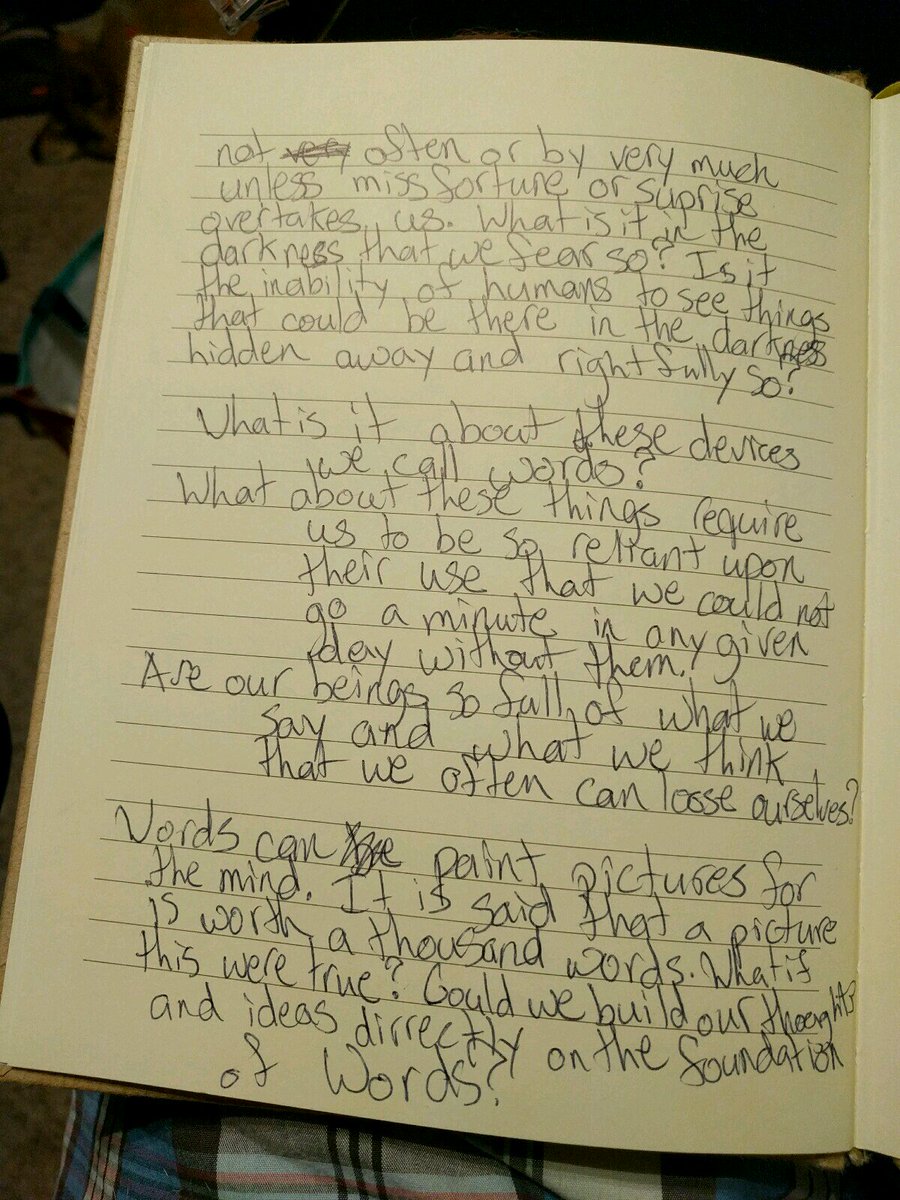 not very often or by very much
unless miss forture or suprise
overtakes us. What is it in the
darkness that we fear so? Is it
the inability of humans to see things
that could be there in the darkness
hidden away and rightfully so?
What is it about these devices
we call words?
What about these things require
us to be so reliant upon
their use that we could not
go a minute in any given
day without them?
Are our beings so full of what we
say and what we think
that we often can loose ourselves?
Words can paint pictures for
the mind. It is said that a picture
is worth a thousand words. What if
this were true? Could we build our thoughts
and ideas dirrectly on the foundation
of Words?